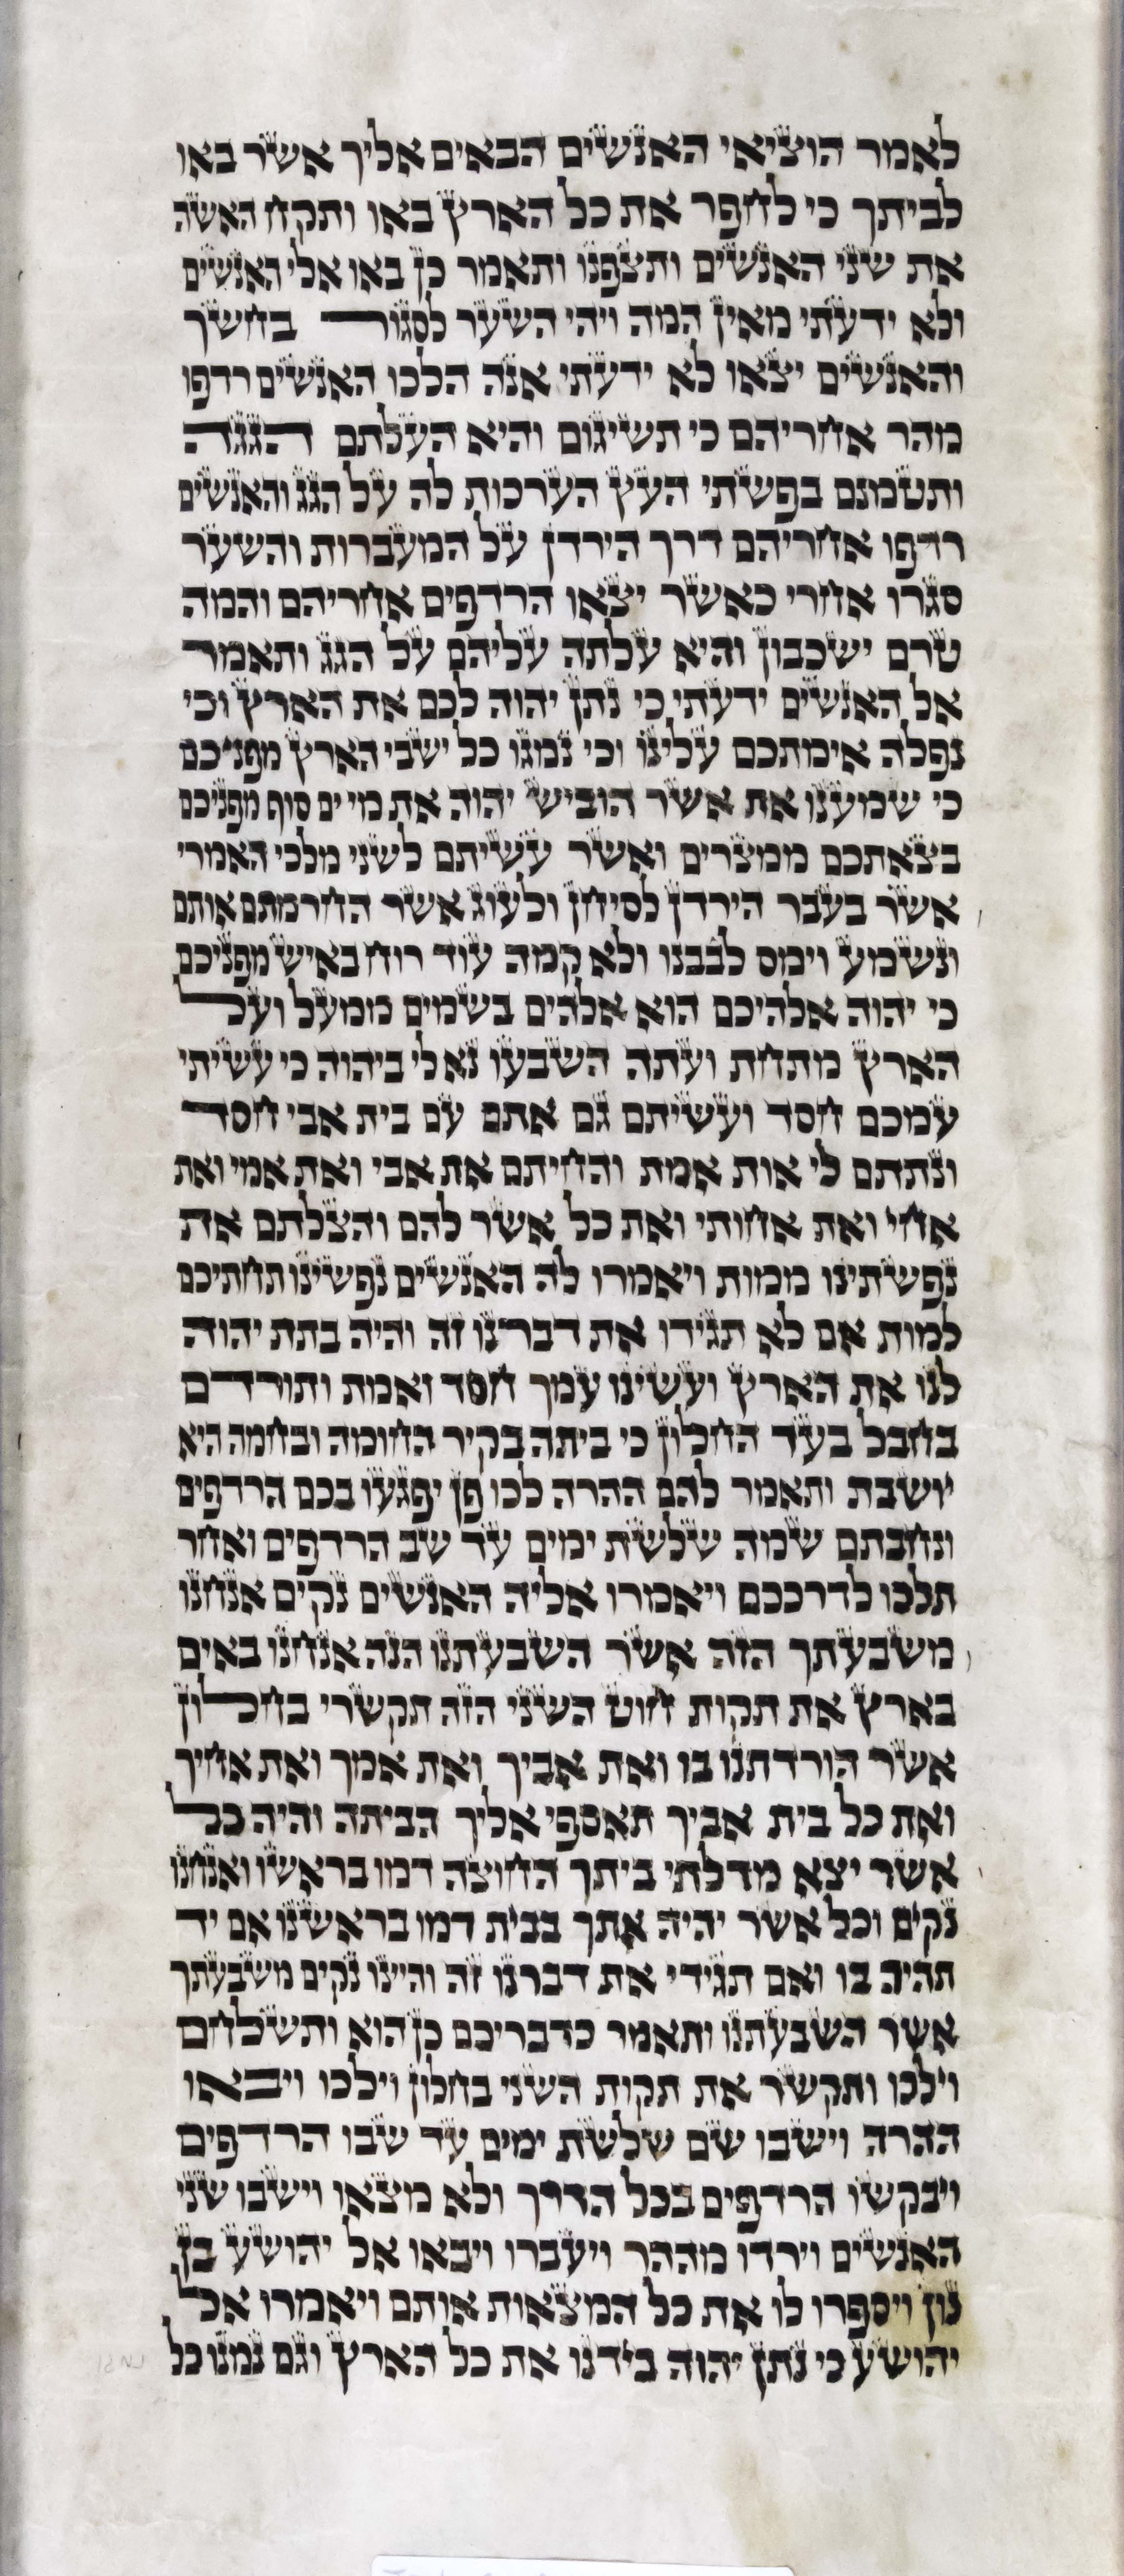 לאמר הוציאי האנשים הבאים אליך אשר באו
לביתך כי לחפר את כל הארץ באו ותקח האשה
את שני האנשים ותצפנו ותאמר כן באו אלי האנשים
ולא ידעתי מאין המה ויהי השער לסגור בחשך
והאנשים יצאו לא ידעתי אנה הלכו האנשים רדפו
מהר אחריהם כי תשיגום והיא העלתם הגגה
ותטמנם בפשתי העץ הערכות לה על הגג והאנשים
רדפו אחריהם דרך הירדן על המעברות והשער
סגרו אחרי כאשר יצאו הרדפים אחריהם והמה
טרם ישכבון והיא עלתה עליהם על הגג ותאמר
אל האנשים ידעתי כי נתן יהוה לכם את הארץ וכי
נפלה אימתכם עלינו וכי נמגו כל ישבי הארץ מפניכם
כי שמענו את אשר הוביש יהוה את מי ים סוף מפניכם
בצאתכם ממצרים ואשר עשיתם לשני מלכי האמרי
אשר בעבר הירדן לסיחן ולעוג אשר החרמתם אותם
ונשמע וימס לבבנו ולא קמה עוד רוח באיש מפניכם
כי יהוה אלהיכם הוא אלהים בשמים ממעל ועל
הארץ מתחת ועתה השבעו נא לי ביהוה כי עשיתי
עמכם חסד ועשיתם גם אתם עם בית אבי חסד
ונתתם לי אות אמת והחיתם את אבי ואת אמי ואת
אחי ואת אחותי ואת כל אשר להם והצלתם את
נפשתינו ממות ויאמרו לה האנשים נפשינו תחתיכם
למות אם לא תגידו את דברנו זה והיה בתת יהוה
לנו את הארץ ועשינו עמך חסד ואמת ותורדם
בחבל בעד החלון כי ביתה בקיר החומה ובחמה היא
יושבת ותאמר להם ההרה לכו פן יפגעו בכם הרדפים
ונחבתם שמה שלשת ימים עד שב הרדפים ואחר
תלכו לדרככם ויאמרו אליה האנשים נקים אנחנו
משבעתך הזה אשר השבעתנו הנה אנחנו באים
בארץ את תקות חוט השני הזה תקשרי בחלון
אשר הורדתנו בו ואת אביך ואת אמך ואת אחיך
ואת כל בית אביך תאספי אליך הביתה והיה כל
אשר יצא מדלתי ביתך החוצה דמו בראשו ואנחנו
נקים וכל אשר יהיה אתך בבית דמו בראשנו אם יד
תהיה בו ואם תגידי את דברנו זה והיינו נקים משבעתך
אשר השבעתנו ותאמר כדבריכם כן הוא ותשלחם
וילכו ותקשר את תקות השני בחלון וילכו ויבאו
ההרה וישבו שם שלשת ימים עד שבו הרדפים
ויבקשו הרדפים בכל הדרך ולא מצאו וישבו שני
האנשים וירדו מההר ויעברו ויבאו אל יהושע בן
נון ויספרו לו את כל המצאות אותם ויאמרו אל
יהושע כי נתן יהוה בידנו את כל הארץ וגם נמגו כל